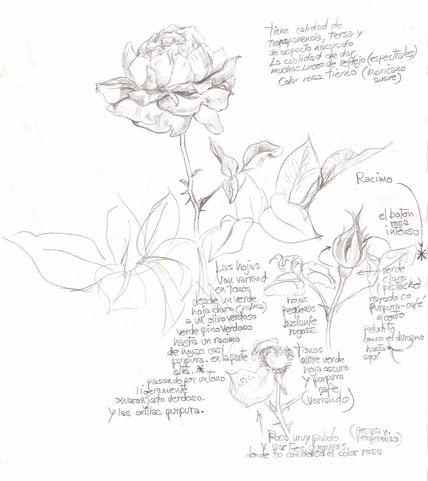 Tiene calidad de
transparencia, tersa y
de aspecto nacarado
La cualidad de dar
muchas luces de reflejo (espectrales)
Color rosa tierno (mexicano
suave)
Racimo
el botón
rosa
intenso
*
verde
claro
pistache
rayado co
purpura-café
al centro
peludito
como el durazno
hasta
aquí
Las hojas
Van variand
en tonos
desde un verde
hoja claro
a un olivo verdoso
verde pino verdoso
hasta un racimo
de hojas casi
purpura. en la parte
alta. *
pasando por un tono
ligeramente
anaranjado verdoso.
y las orillas purpura.
hojas
pequeñas
y
bastante
rugosas
tonos
entre verde
hoja oscuro
y purpura
café
(variando)
Rosa muy palido
y partes
donde se condensa el color rosa